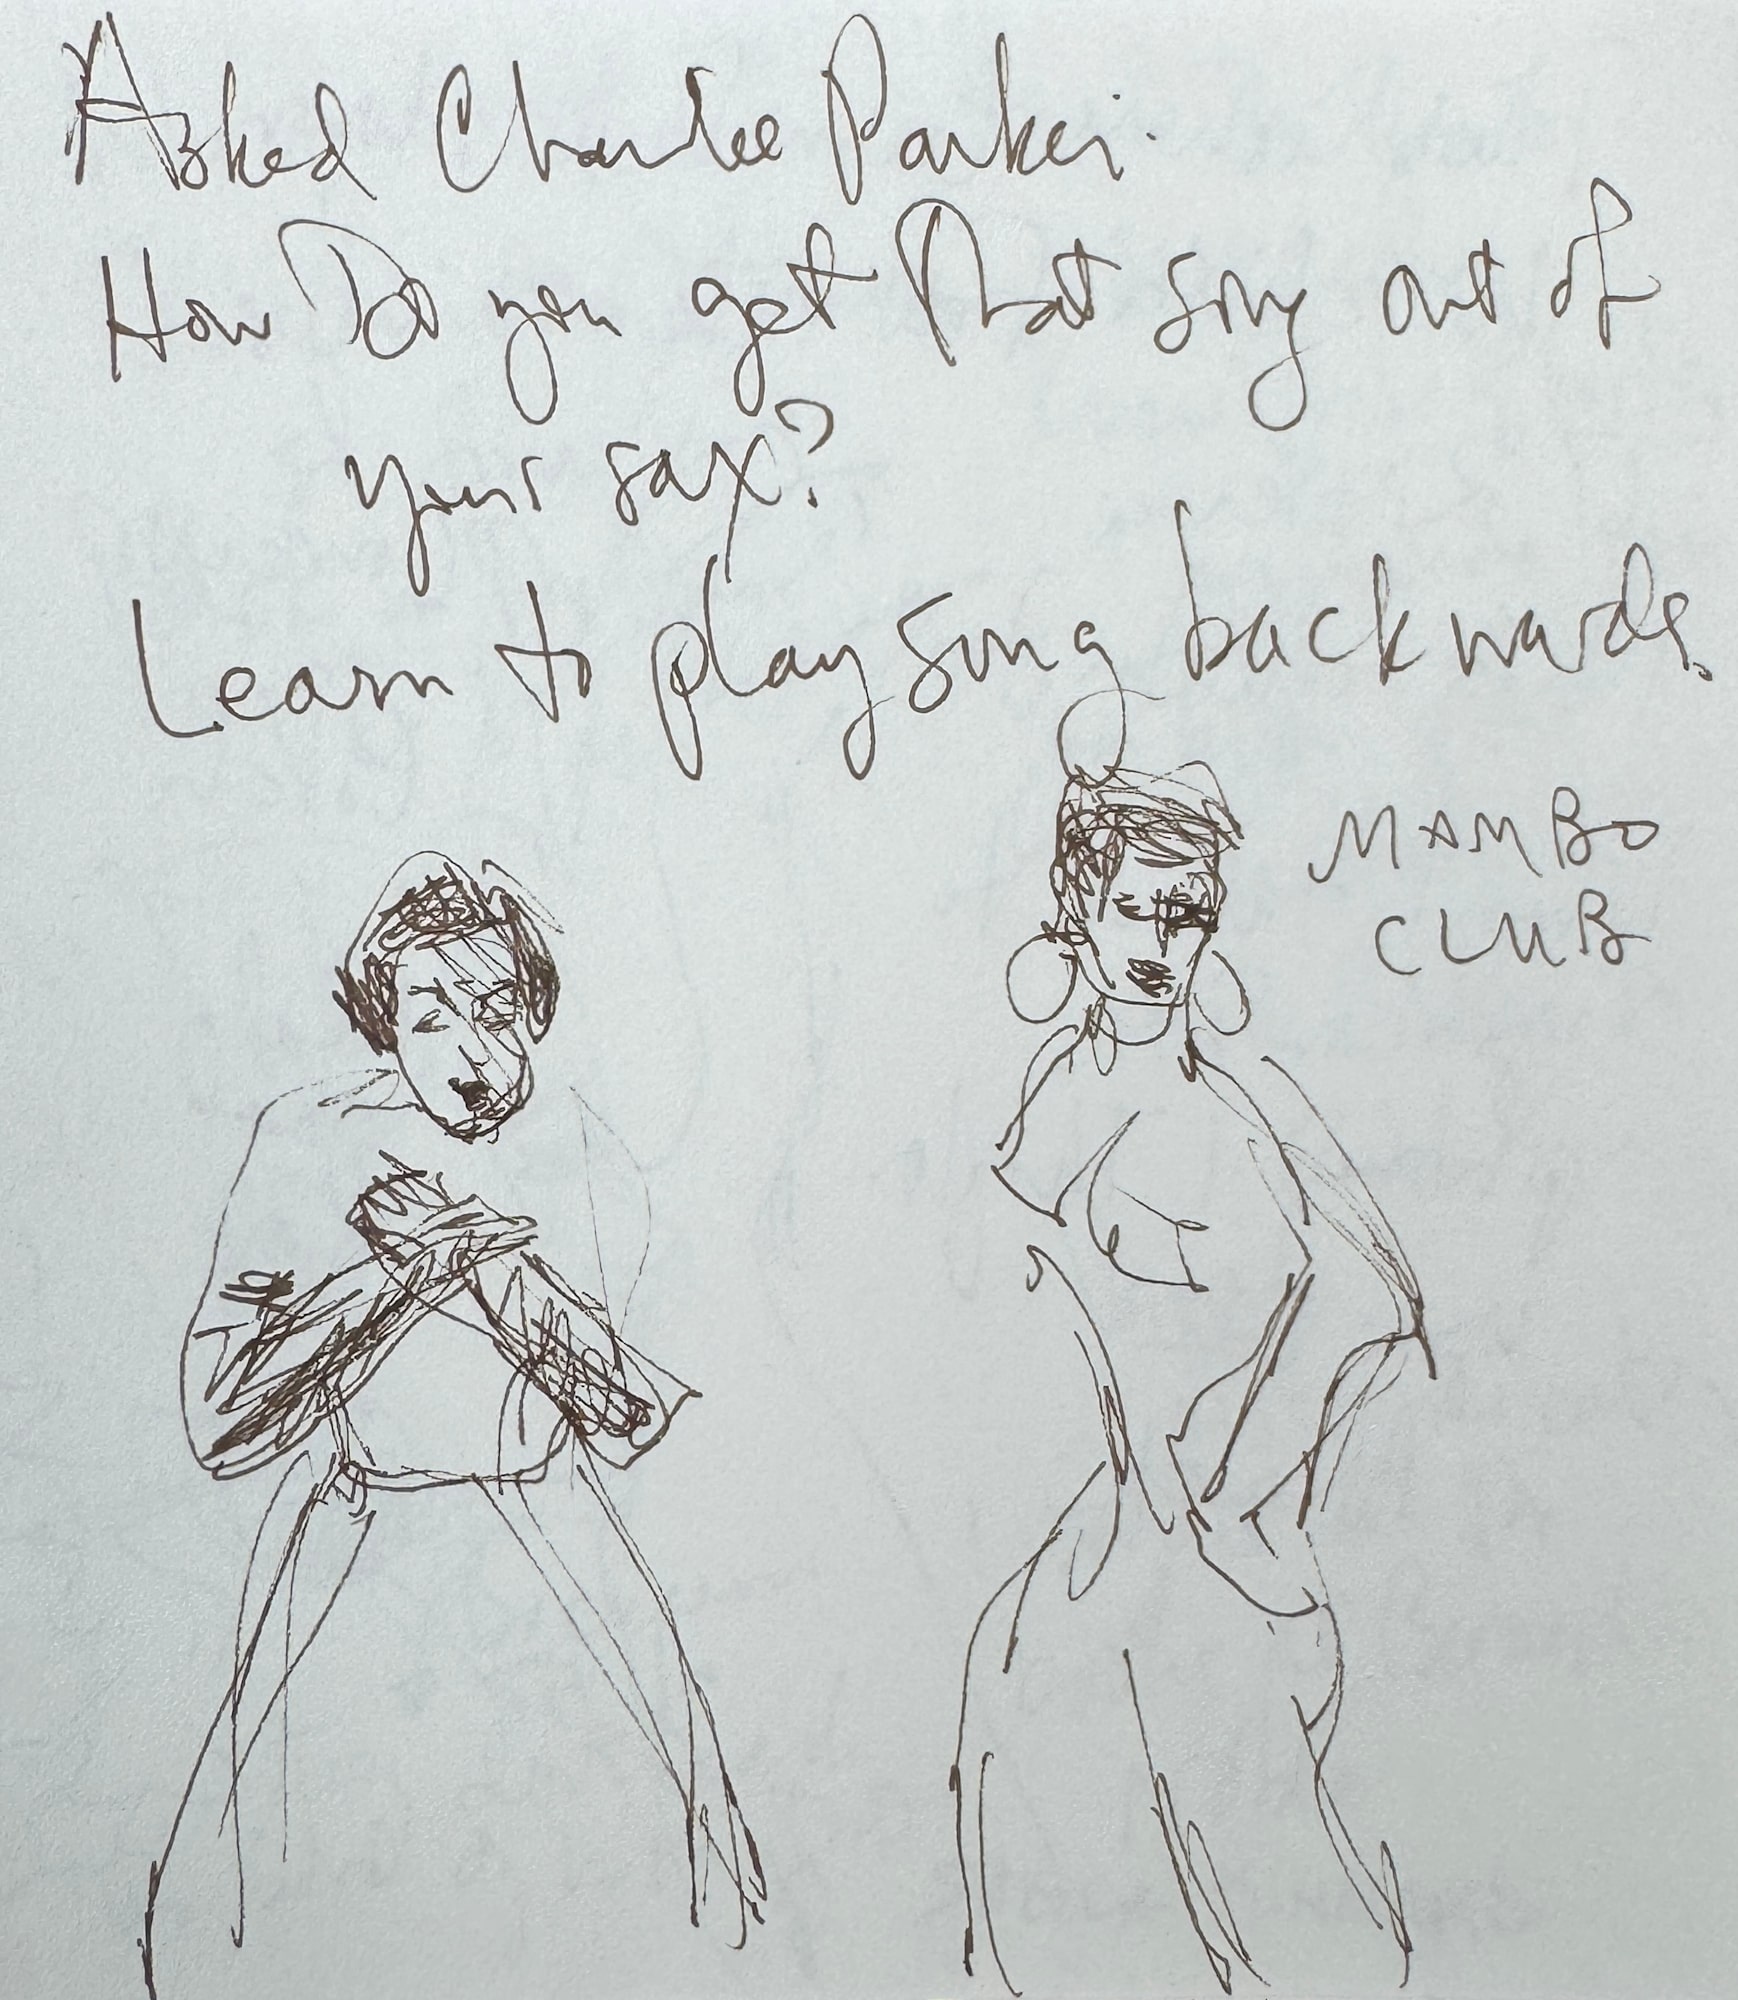 Asked Charlie Parker.
How Do you get that song out of
your sax?
Learn to play song backwards.
MAMBO
CLUB